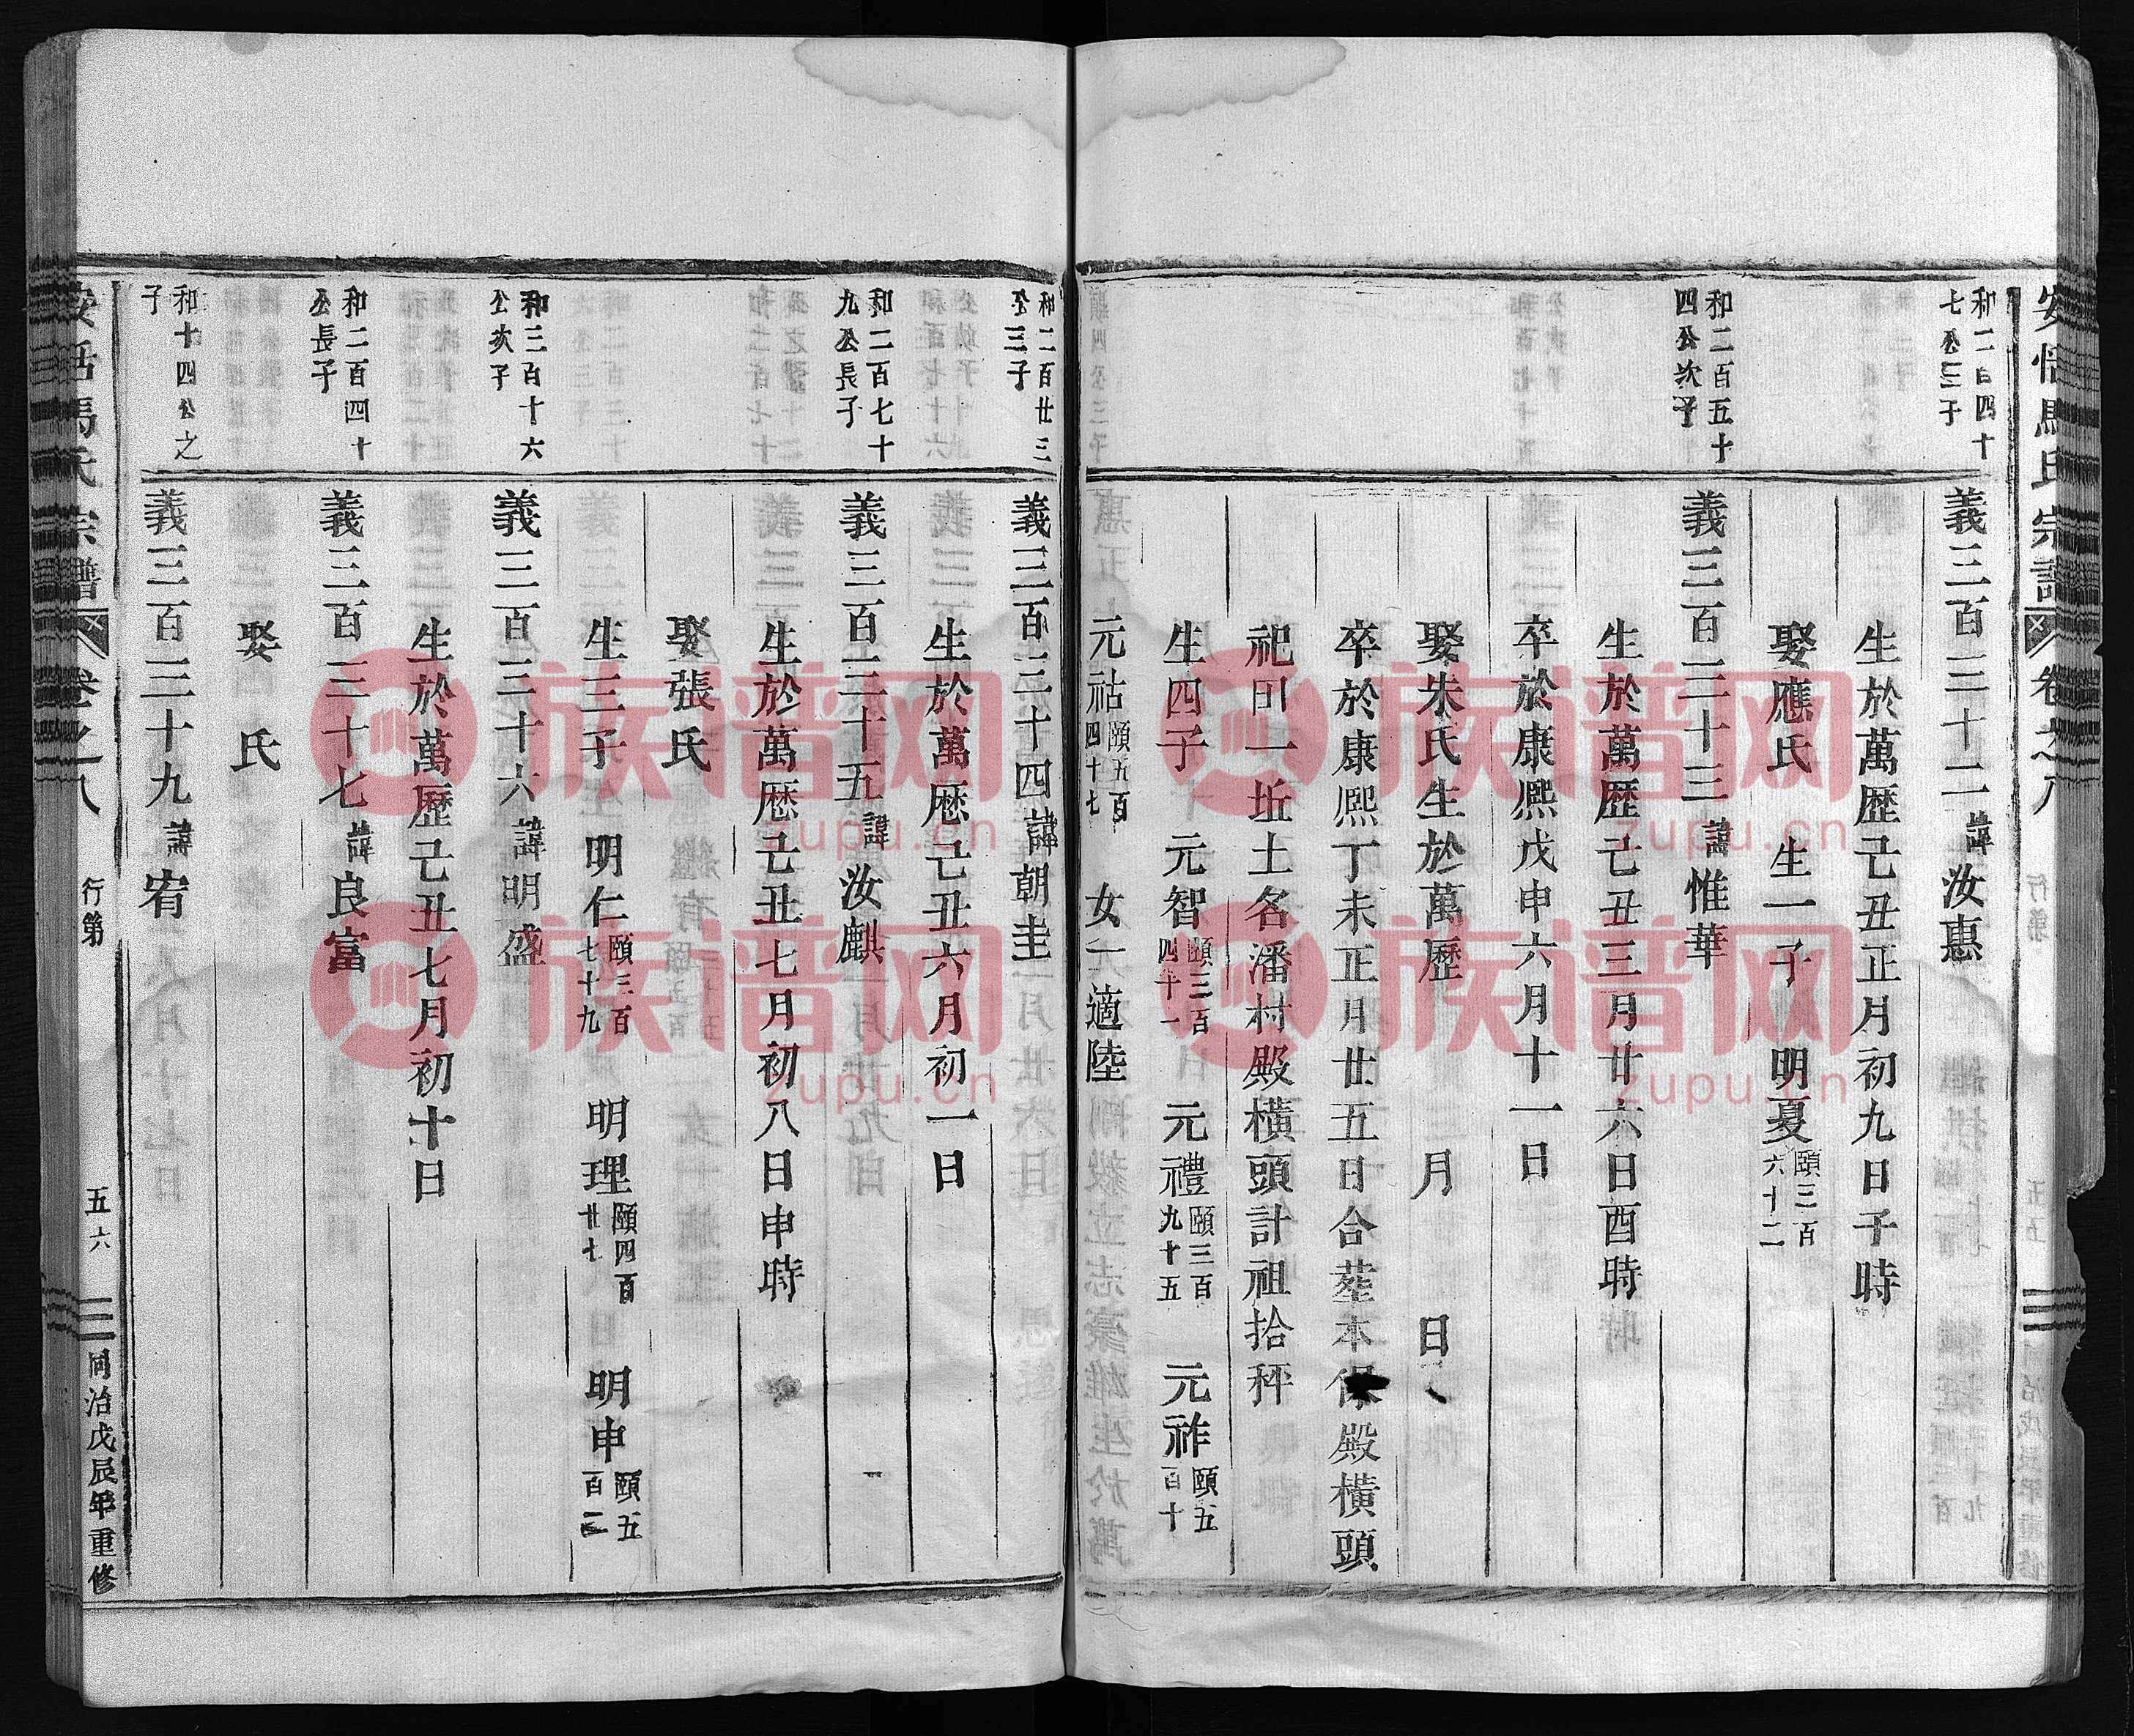 安恬馬氏宗譜 卷之八 行第
和二百四十
七公三子
義三百三十二諱汝惠
生於萬歷己丑正月初九日子時
娶應氏 生一子 明夏頤三百六十二
和二百五十
四公次子
義三百三十三諱惟華
生於萬歷己丑三月廿六日酉時
卒於康熙戊申六月十一日
娶朱氏生於萬歷 三月 日
卒於康熙丁未正月廿五日合塟本保殿橫頭
祀田一坵土名潘村殿橫頭計祖拾秤
生四子 元智頤三百四十一 元禮頤三百九十五 元祚頤五百十
元祜頤五百四十七 女一適陸
和二百廿三
公三子
義三百三十四諱朝圭
生於萬歷己丑六月初一日
和二百七十
九公長子
義三百三十五諱汝麒
生於萬歷己丑七月初八日申時
娶張氏
生三子 明仁頤三百七十九 明理頤四百廿七 明申頤五百二
和三百十六
公次子
義三百三十六諱明盛
生於萬歷己丑七月初十日
和二百四十
公長子
義三百三十七諱良富
娶 氏
和十四公之
子
義三百三十九諱宥
安恬馬氏宗譜 卷之八 行第 五六 同治戊辰年重修
族谱网
zupu.cn
族谱网
zupu.cn
族谱网
zupu.cn
族谱网
zupu.cn